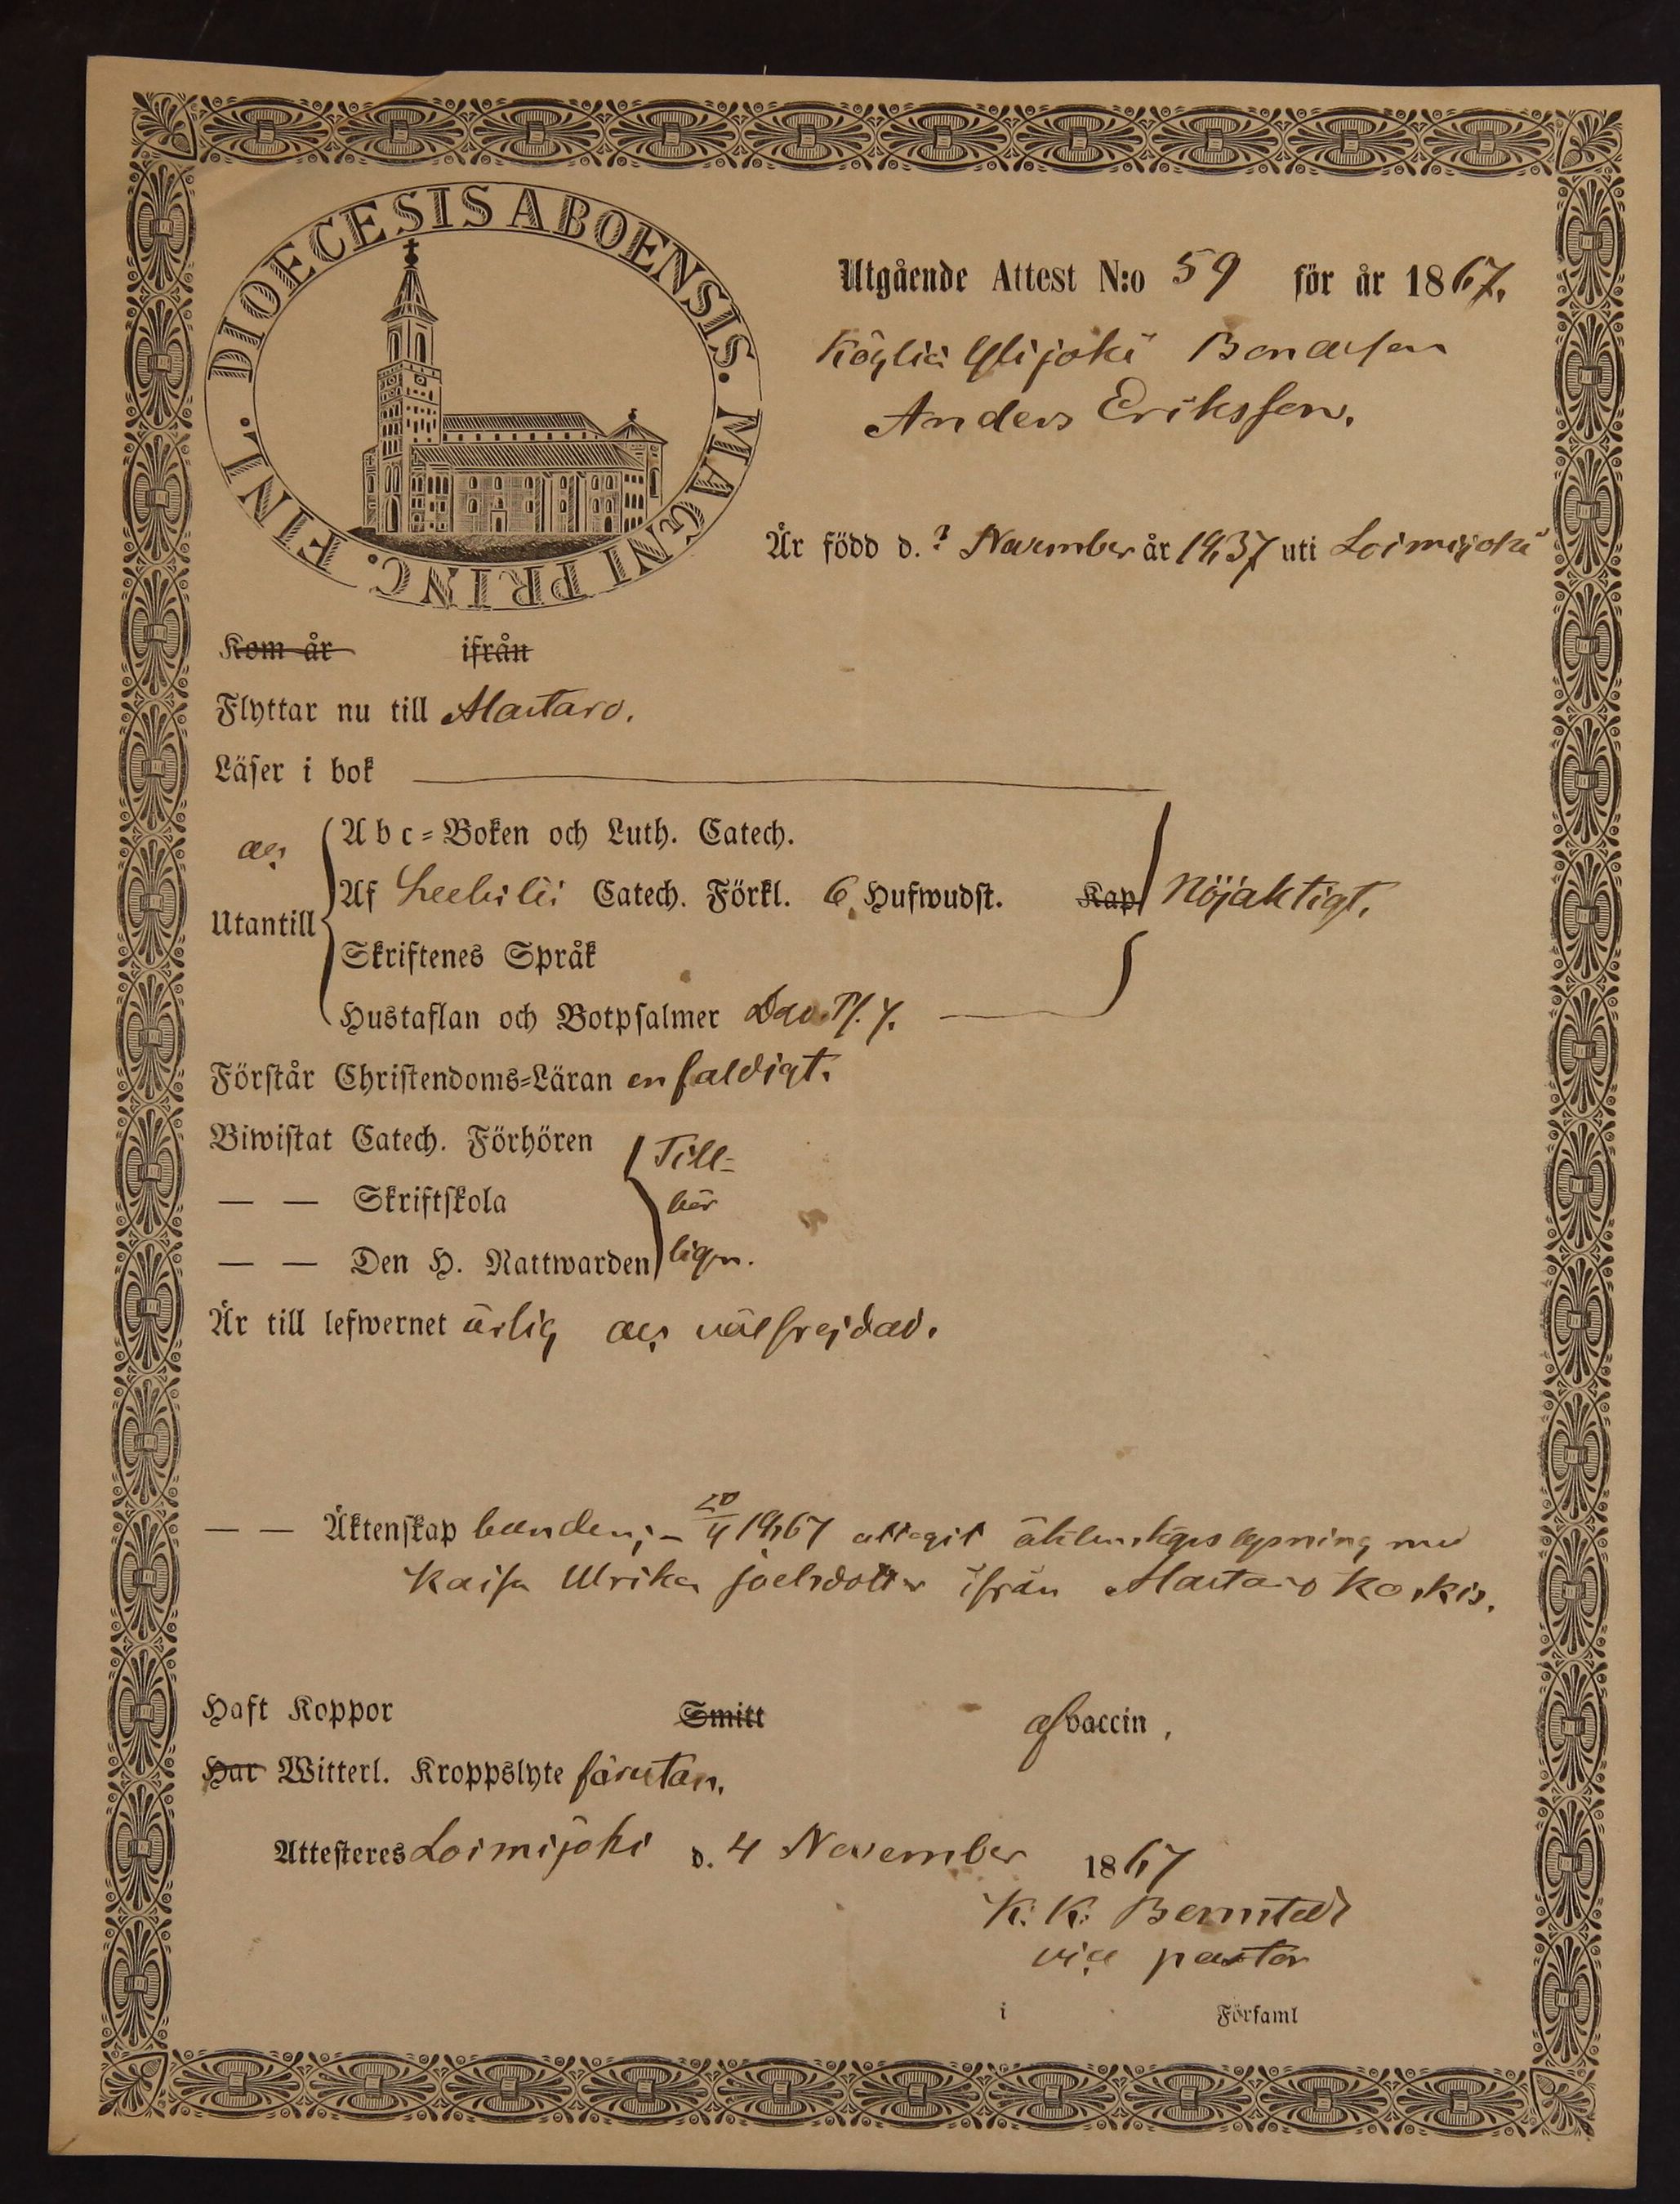 DIOECESIS ABOENSIS. MAGNI PRINC. FINL.
Utgående Attest N:o 59 för år 1867.
Köyliö Ylijoki Bondeson
Anders Eriksson.
Är född d. ? November år 1837 uti Loimijoki
Kom år ifrån
Flyttar nu till Alastaro.
Läser i bok
och
Utantill
Abc-Boken och Luth. Catech.
Af Catech. Förkl. 6 Hufwudst. Kap
Nöjaktigt.
Skriftenes Språk
Hustaflan och Botpsalmer Dav. Ps. 7.
Förstår Christendoms-Läran enfaldigt.
Biwistat Catech. Förhören Till-
— — Skriftskola bör
— — Den H. Nattwarden ligen.
Är till lefwernet ärlig och välfrejdad.
— — Äktenskap 1867 uttagit äktenskapslysning med
Kaisa Ulrika Joelsdotter ifrån Alastaro Koskis.
Haft Koppor Smitt af vaccin,
Har Witterl. Kroppslyte förutan.
Attesteres Loimijoki d. 4 November 1867
K. K. Bernstedt
vice pastor
i Församl